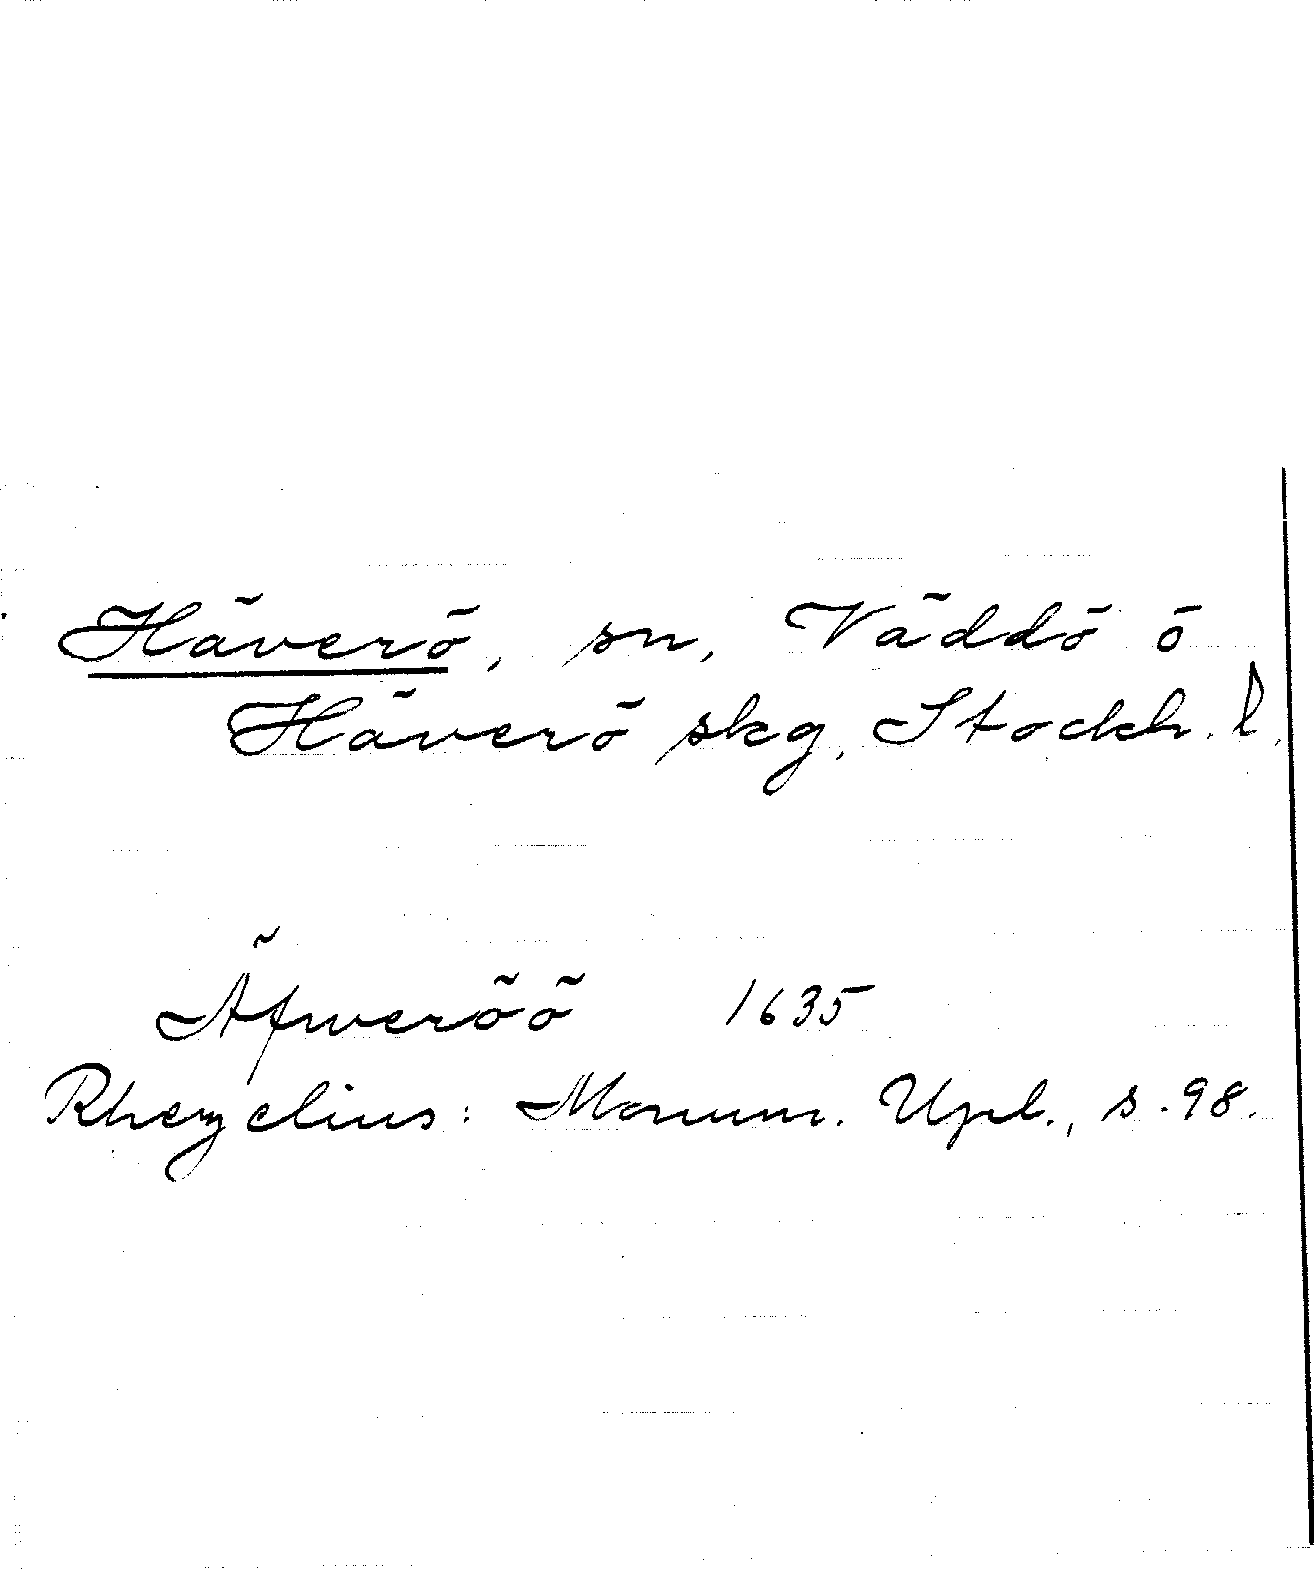 Häverö, sn, Väddö ö
Häverö skg, Stockh. l.
Äfweröö 1635
Rhezelius: Monum. Upl., s. 98.